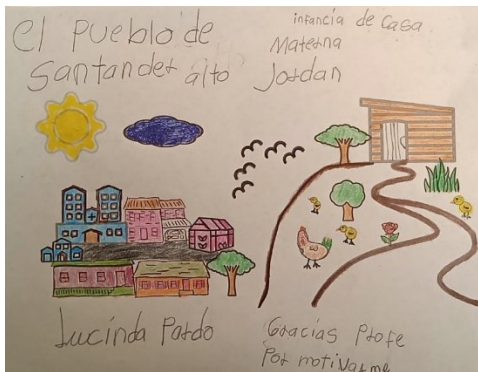 El Pueblo de
Santander alto
infancia de Casa
Materna
Jordan
Lucinda Pardo
Gracias Profe
Por motivarme